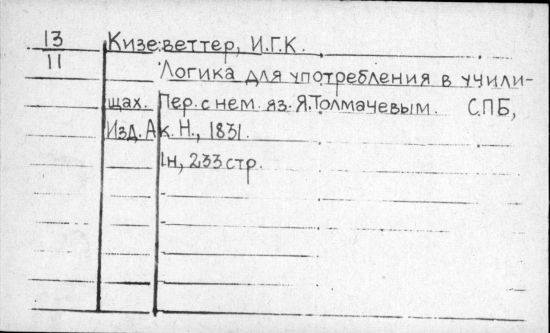 13 Кизеветтер, И.Г.К.
11
Логика для употребления в учили-
щах. Пер. с нем. яз. Я.Толмачевым. СПБ,
Изд. Ак. Н., 1831.
1н, 233 стр.